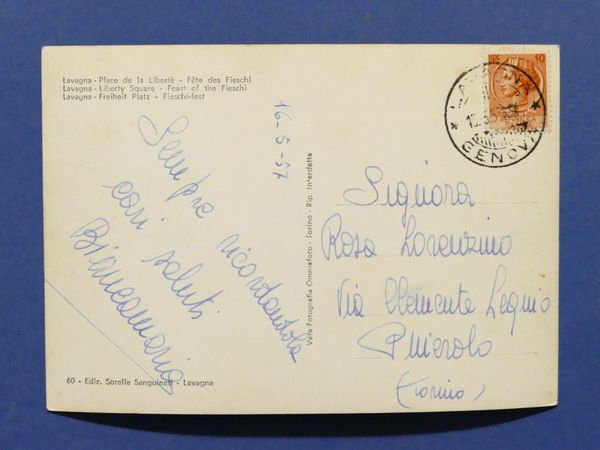 Lavagna - Place de la Libertè - Fête des Fieschi
Lavagna - Liberty Square - Feast of the Fieschi
Lavagna - Freiheit Platz - Fieschi-fest
16-5-57
Sempre ricordandola
cari saluti
Biancamaria
60 - Ediz. Sorelle Sanguineti - Lavagna
Vera Fotografia Omniafoto - Torino - Rip. Interdetta
10
LAVAGNA
GENOVA
Signora
Rosa Lorenzino
Via Clemente Lequio
Pinerolo
(Torino)